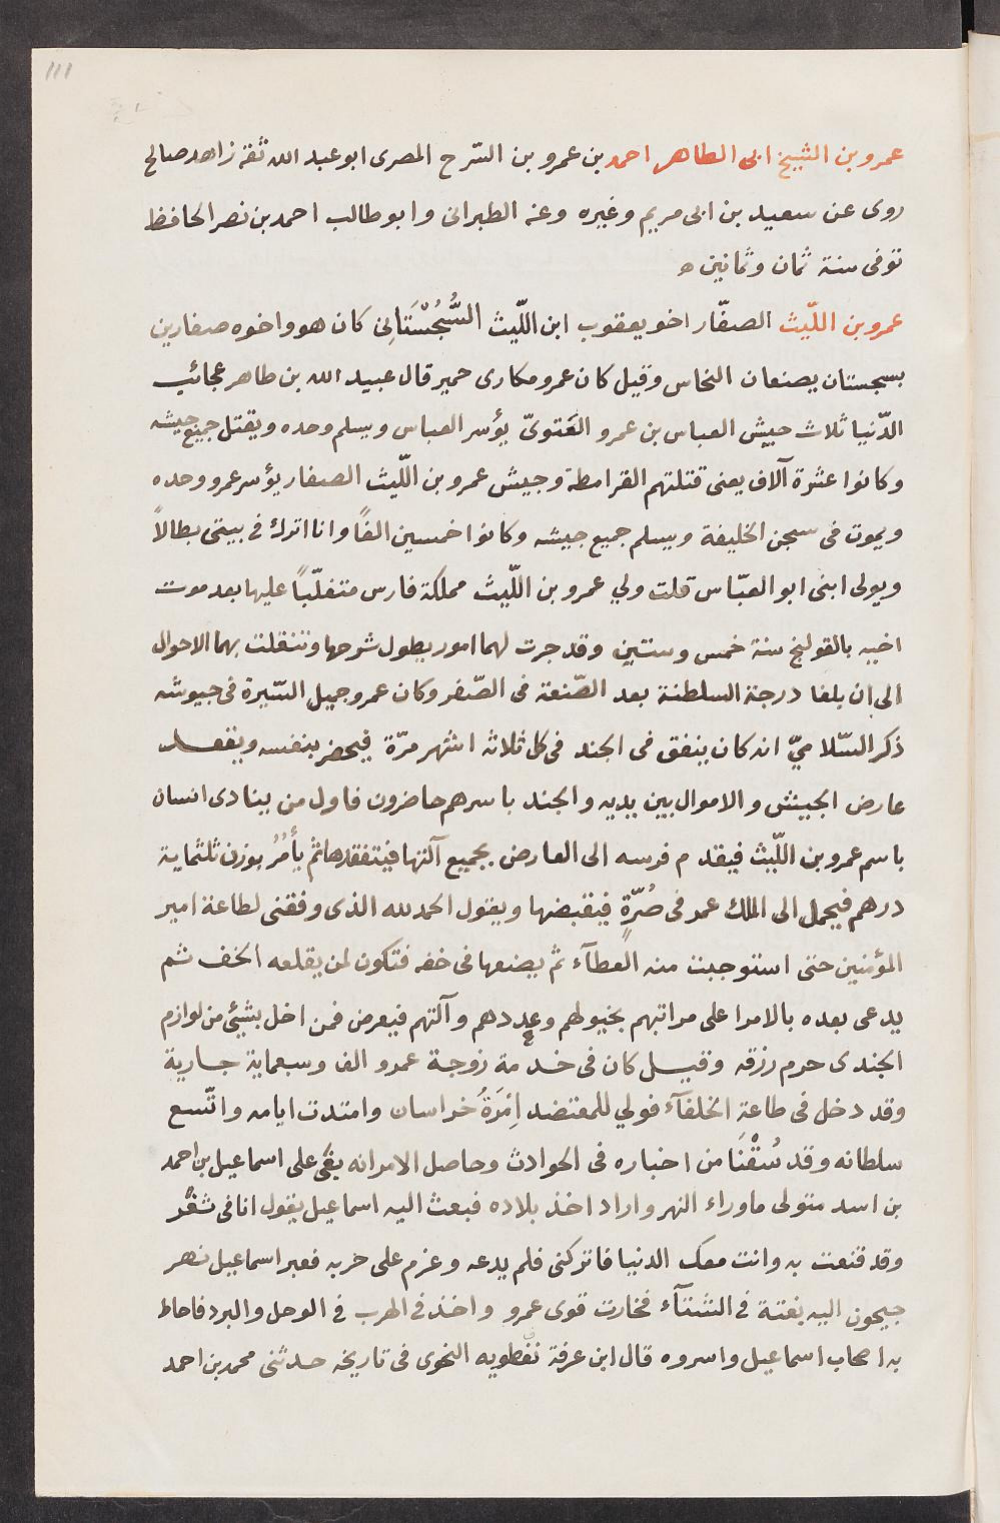 111
عمرو بن الشيخ ابى الطاهر احمد بن عمرو بن السّرح المصرى ابو عبد الله ثقة زاهد صالح
روى عن سعيد بن ابى مريم وغيره وعنه الطبرانى وابو طالب احمد بن نصر الحافظ
توفى سنة ثمان وثمانين ه
عمرو بن اللّيث الصفّار اخو يعقوب ابن اللّيث السُّجُسْتَانِى كان هو واخوه صفارين
بسجستان يصنعان النحاس وقيل كان عمرو مكارى حمير قال عبيد الله بن طاهر عجائب
الدّنيا ثلاث جيش العباس بن عمرو الغَنوىّ يؤسر العباس ويسلم وحده ويقتل جميع جيشه
وكانوا عشرة آلاف يعنى قتلتهم القرامطة وجيش عمرو بن اللّيث الصفار يؤسر عمرو وحده
ويموت فى سجن الخليفة ويسلم جميع جيشه وكانوا خمسين الفًا وانا اترك فى بيتى بطالاً
ويولى ابنى ابو العبّاس قلت ولي عمرو بن اللّيث مملكة فارس متغلّباً عليها بعد موت
اخيه بالقولنج سنة خمس وستين وقد جرت لهما امور يطول شرحها وتنقلت بهما الاحوال
الى ان بلغا درجة السلطنة بعد الصّنعة فى الصّفر وكان عمرو جميل السّيرة فى جيوشه
ذكر السّلاميّ انه كان ينفق فى الجند فى كل ثلاثه اشهر مرّة فيحضر بنفسه ويقعد
عارض الجيش والاموال بين يديه والجند باسرهم حاضرون فاول من ينادى انسان
باسم عمرو بن اللّيث فيقدم فرسه الى العارض بجميع آلتها فيتفقدها ثم يأمُرُ بوزن ثلثماية
درهم فيحمل الى الملك عمرو فى صُرّةٍ فيقبضها ويقول الحمد لله الذى وفقنى لطاعة امير
المؤمنين حتى استوجبت منه العطآء ثم يضعها فى خفه فتكون لمن يقلعه الخف ثم
يدعى بعده بالامرا على مراتبهم بخيولهم وعددهم وآلتهم فيعرض فمن اخل بشيئ من لوازم
الجندى حرم رزقه وقيل كان فى خدمة زوجة عمرو الف وسبعماية جارية
وقد دخل فى طاعة الخلفآء فولي للمعتضد اِمْرَةُ خراسان وامتدت ايامه واتّسع
سلطانه وقد سُقْنَا من اخباره فى الحوادث وحاصل الامر انه بغى على اسماعيل بن احمد
بن اسد متولى ماوراء النهر واراد اخذ بلاده فبعث اليه اسماعيل يقول انا فى ثغر
وقد قنعت به وانت معك الدنيا فاتركنى فلم يدعه وعزم على حربه فعبر اسماعيل نهر
جيحون اليه بغتة فى الشتآء فخارت قوى عمرو واخذ فى الهرب فى الوحل والبرد فاحاط
به اصحاب اسماعيل واسروه قال ابن عرفة نفطويه النحوى فى تاريخه حدثنى محمد بن احمد